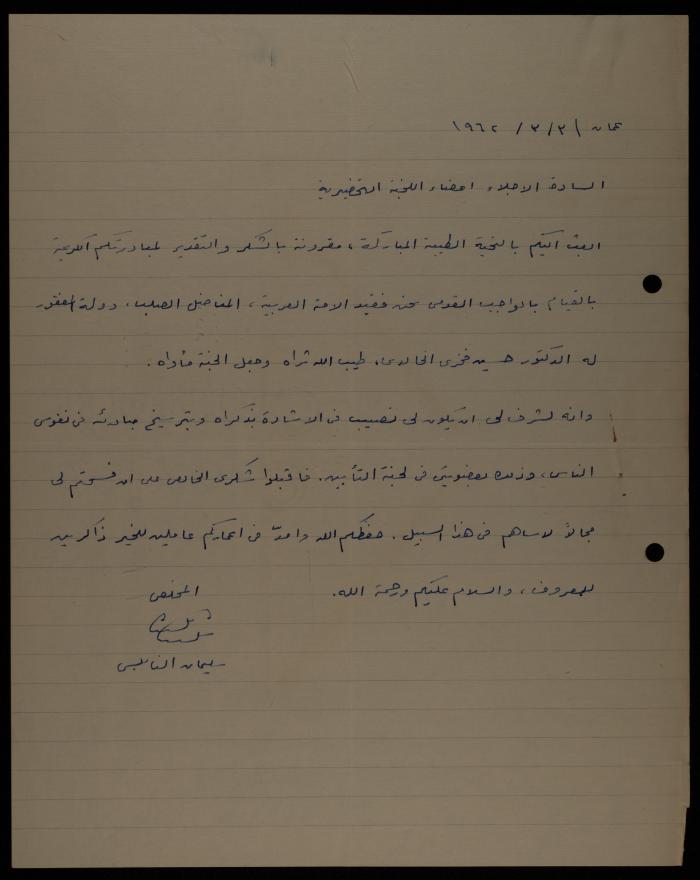 عمان ٣/٣/١٩٦٢
السادة الاجلاء اعضاء اللجنة التحضيرية
ابعث اليكم بالتحية الطيبة المباركة، مقرونة بالشكر والتقدير لمبادرتكم الكريمة
بالقيام بالواجب القومي نحو فقيد الامة العربية، المناضل الصلب، دولة المغفور
له الدكتور حسين فخري الخالدي، طيب الله ثراه وجعل الجنة مأواه.
وانه لشرف لي ان يكون لي نصيب في الاشادة بذكراه وبترسيخ مبادئه في نفوس
الناس، وذلك بعضويتي في لجنة التأبين. فاقبلوا شكري الخالص على ان فسحتم لي
مجالاً لاساهم في هذا السبيل. حفظكم الله وامدّ في اعماركم عاملين للخير ذاكرين
للمعروف، والسلام عليكم ورحمة الله.
المخلص
سليمان النابلسي